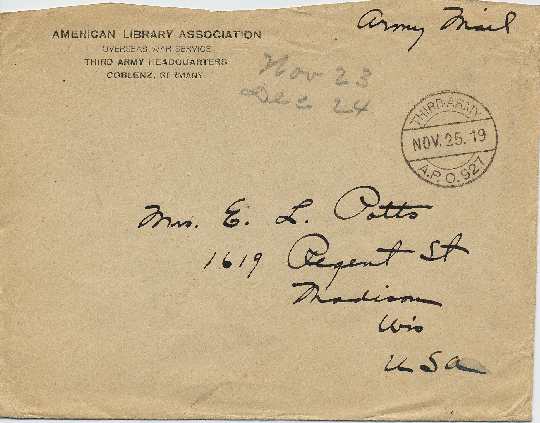 AMERICAN LIBRARY ASSOCIATION
OVERSEAS WAR SERVICE
THIRD ARMY HEADQUARTERS
COBLENZ, GERMANY
Army Mail
Nov 23
Dec 24
THIRD ARMY
NOV. 25. 19
A.P.O. 927
Mrs. E. L. Potts
1619 Regent St
Madison
Wis
USA